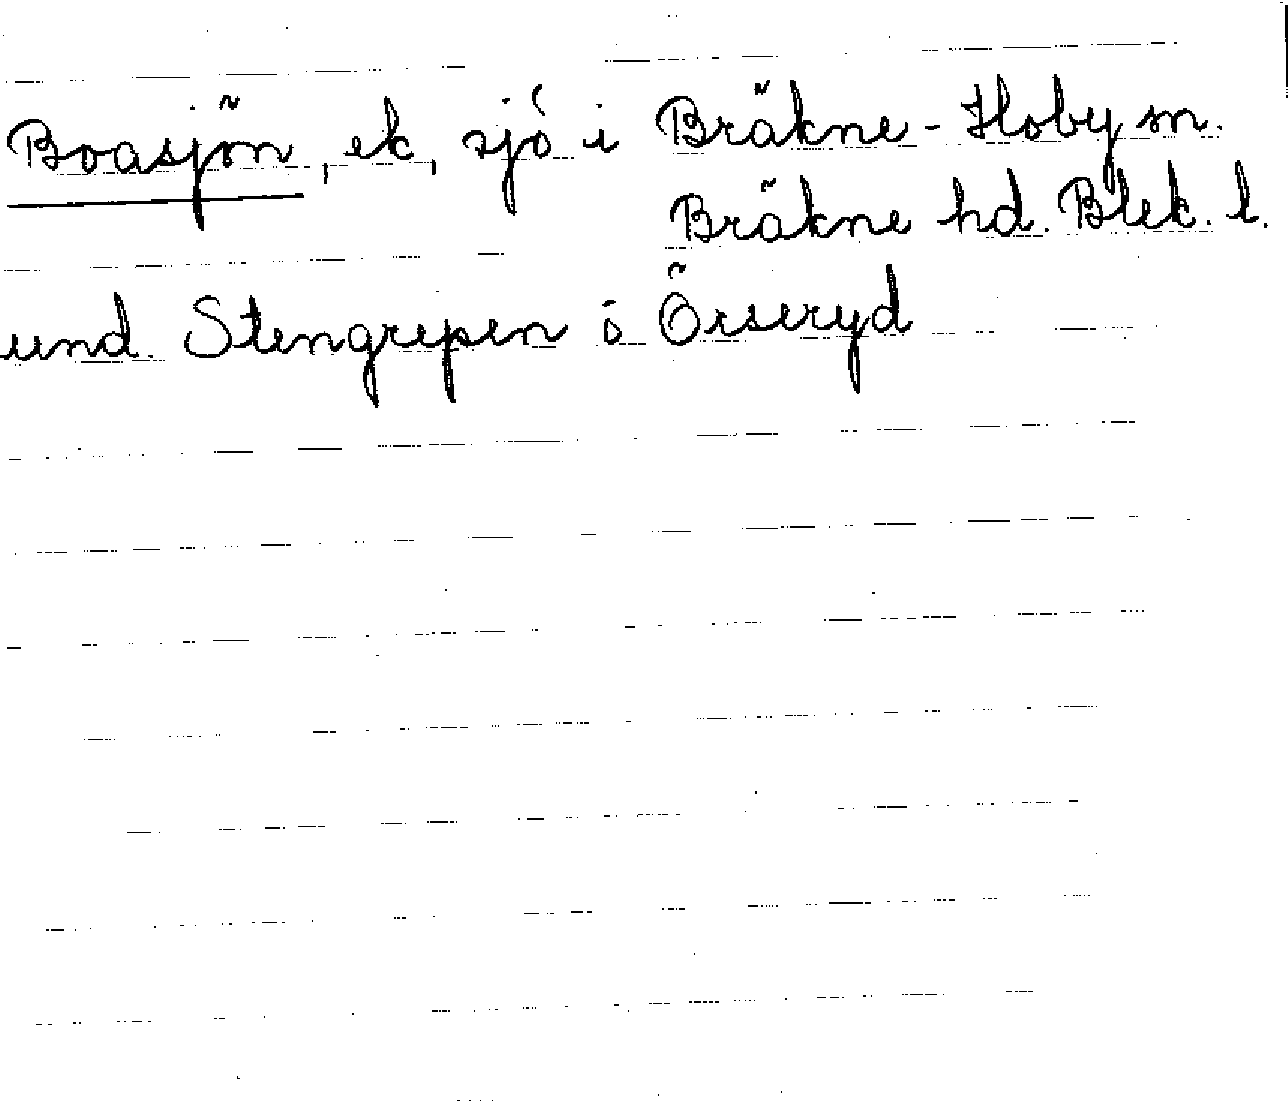 Boasjön, ek, sjö i Bräkne-Hoby sn.
Bräkne hd. Blek. l.
und. Stengrepen i Örseryd